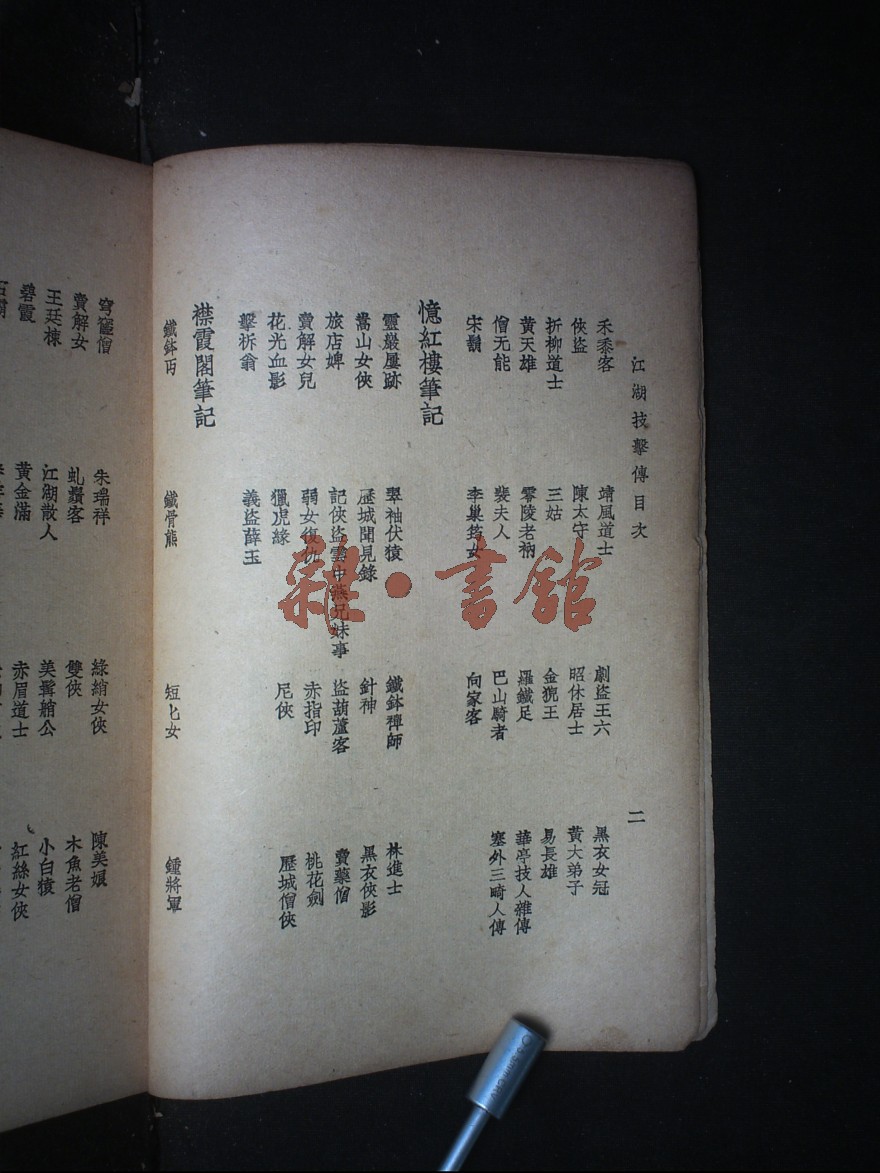 江湖技擊傳目次
二
禾黍客 靖風道士 劇盜王六 黑衣女冠
俠盜 陳太守 昭休居士 黃大弟子
折柳道士 三姑 金猊王 易長雄
黃天雄 零陵老衲 羅鐵足 華亭技人雜傳
僧无能 裴夫人 巴山騎者 塞外三畸人傳
宋鬍 李巢筠女 向家客
憶紅樓筆記
靈巖屢跡 翠袖伏猿 鐵鉢禪師 林進士
嵩山女俠 歷城聞見錄 針神 黑衣俠影
旅店婢 記俠盜雲中燕兄妹事 盜葫蘆客 賣藥僧
賣解女兒 弱女復仇 赤指印 桃花劍
花光血影 獵虎緣 尼俠 歷城僧俠
擊柝翁 義盜薛玉
襟霞閣筆記
鐵鉢丐 鐵骨熊 短匕女 鍾將軍
穹窿僧 朱瑞祥 綠綃女俠 陳美娘
賣解女 虬鬚客 雙俠 木魚老僧
王廷棟 江湖散人 美髯艄公 小白猿
碧霞 黃金滿 赤眉道士 紅絲女俠
雜·書館